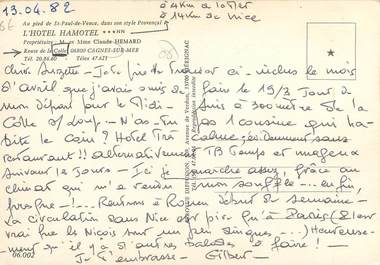 13.04.82
à 4Km de la Mer
à 14Km de Nice
Au pied de St-Paul-de-Vence, dans son style Provençal
L'HOTEL HAMOTEL ***NN
Propriétaire : M. et Mme Claude HEMARD
Route de la Colle 06800 CAGNES-SUR-MER
Tél. 20.86.60 Télex 47.623
Chère Suzette - Je te prie de trouver ci-inclus le mois
d'avril que j'avais omis de faire le 19/3 Jour de
mon départ pour le Midi - Suis à 300 mètres de La
Colle s/ Loup - N'as-tu pas 1 cousine qui ha-
bite le coin ? Hotel Très calme
restaurant !! alternativement TB Temps et mageux
suivant les Jours - Ici je marche assez, grâce au
climat qui m'a rendu mon souffle... enfin,
presque - !... Rentrons à Rouen début de semaine -
La circulation dans Nice est pire qu'à Paris (Il est
vrai que les Niçois sont un peu dingues...) Heureuse-
ment qu'il y a d'autres balades à faire ! -
Je t'embrasse - Gilbert -
06.002